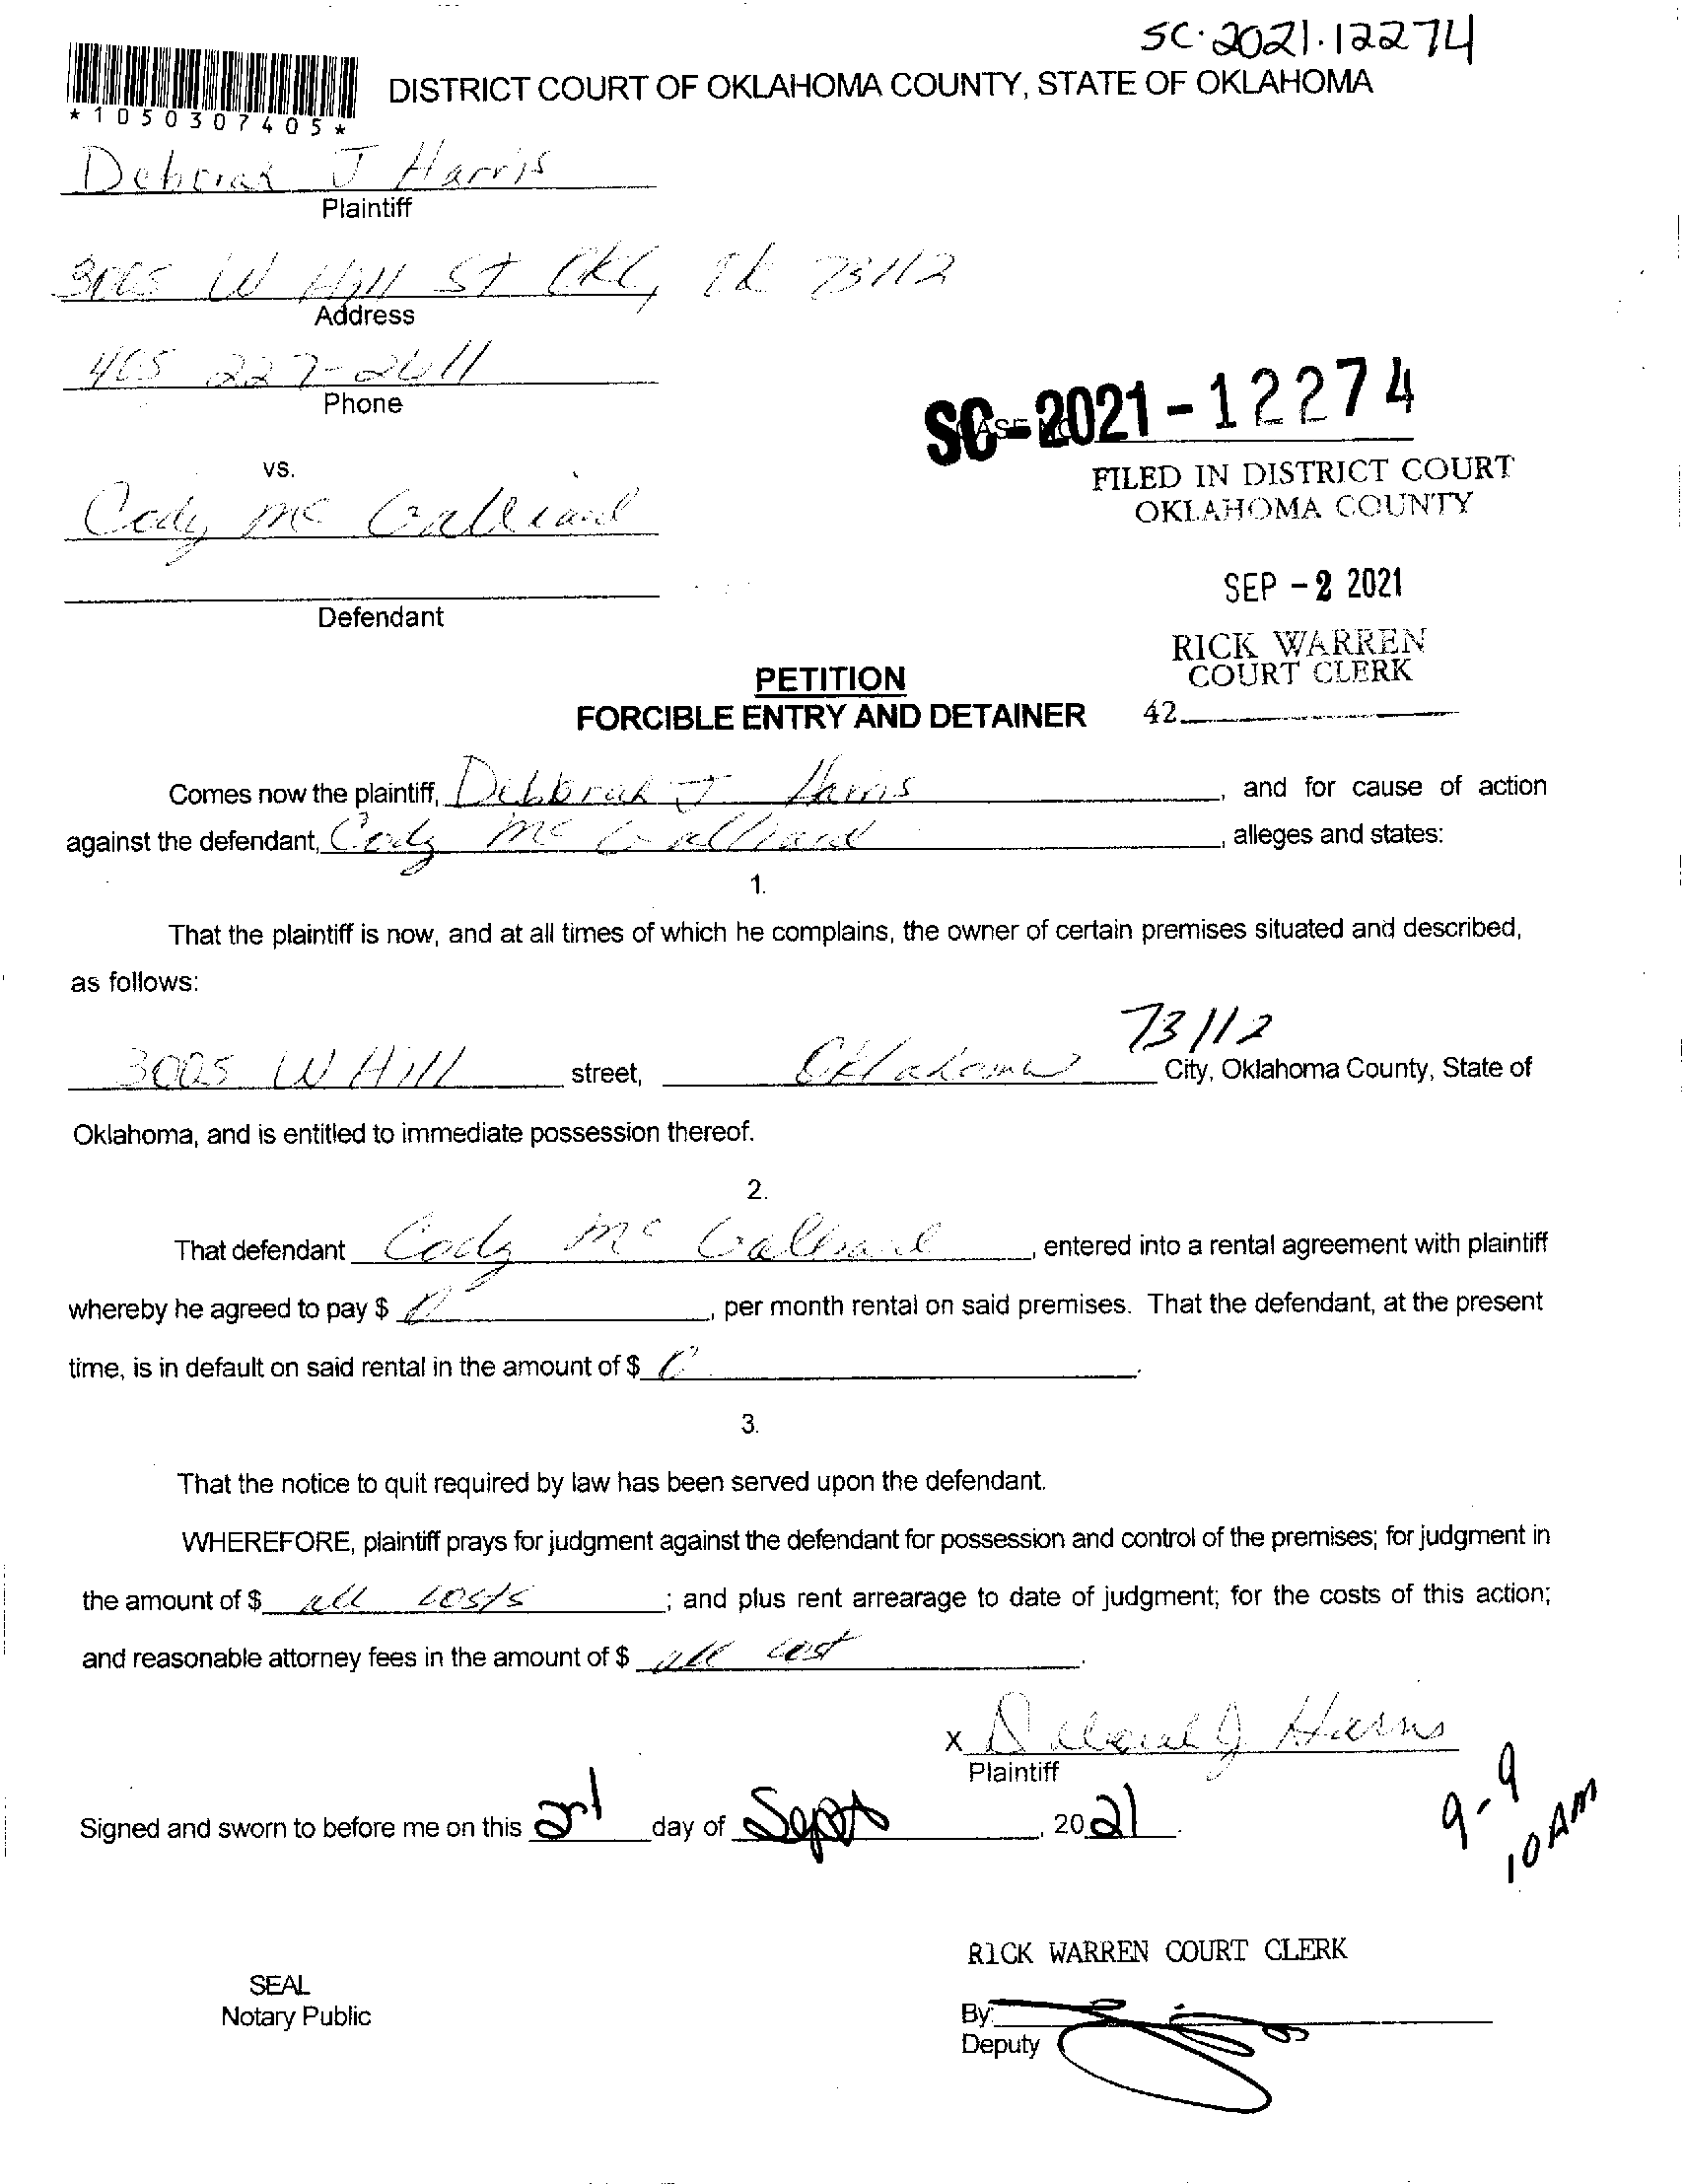 SC·2021·12274
DISTRICT COURT OF OKLAHOMA COUNTY, STATE OF OKLAHOMA
*1050307405*
J Harris
Plaintiff
3005 W Hill St OKC, Ok 73112
Address
405 227-2611
Phone
SC-2021-12274
vs.
FILED IN DISTRICT COURT
OKLAHOMA COUNTY
Cody Mc Galliard
SEP -2 2021
Defendant
RICK WARREN
COURT CLERK
PETITION
FORCIBLE ENTRY AND DETAINER
42
Comes now the plaintiff, Debborah J Harris, and for cause of action
against the defendant, Cody Mc Galliard, alleges and states:
1.
That the plaintiff is now, and at all times of which he complains, the owner of certain premises situated and described,
as follows:
73112
3005 W Hill street, Oklahoma City, Oklahoma County, State of
Oklahoma, and is entitled to immediate possession thereof.
2.
That defendant Cody Mc Galliard, entered into a rental agreement with plaintiff
whereby he agreed to pay $ 0, per month rental on said premises. That the defendant, at the present
time, is in default on said rental in the amount of $ 0.
3.
That the notice to quit required by law has been served upon the defendant.
WHEREFORE, plaintiff prays for judgment against the defendant for possession and control of the premises; for judgment in
the amount of $ all costs; and plus rent arrearage to date of judgment; for the costs of this action;
and reasonable attorney fees in the amount of $ all cost.
x J Harris
Plaintiff
9-9
10 AM
Signed and sworn to before me on this 2nd day of Sept, 2021.
RICK WARREN COURT CLERK
SEAL
Notary Public
By:
Deputy